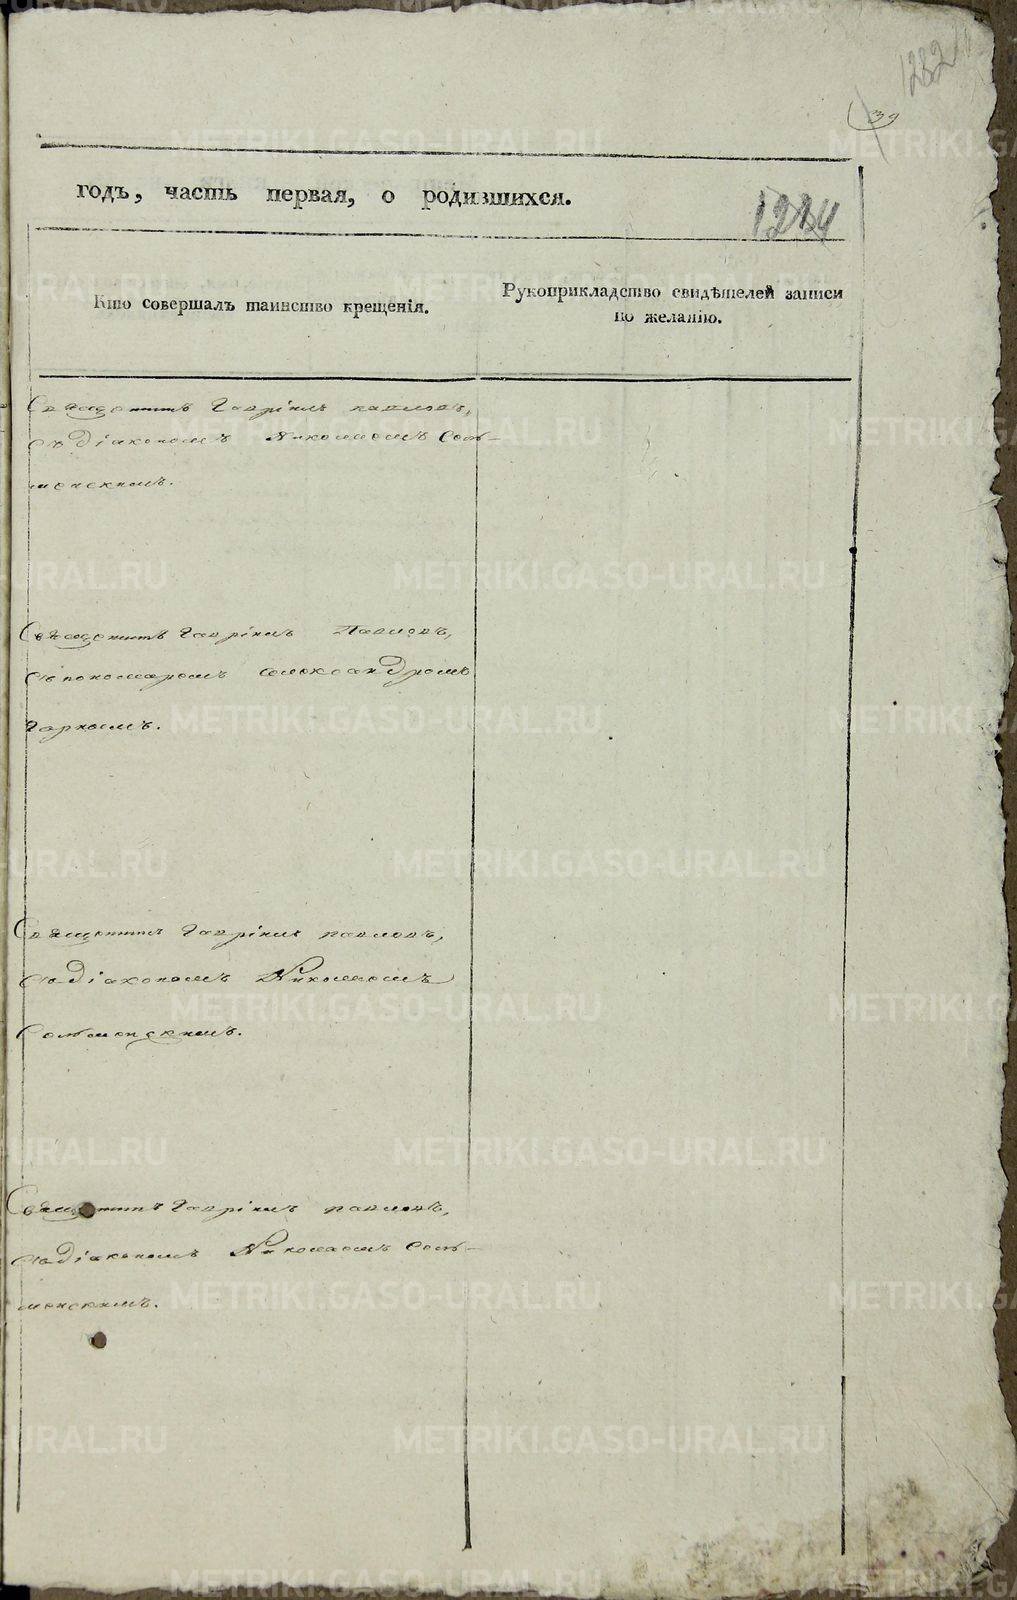 1282
39
годъ, часть первая, о родившихся.
1284
Кто совершалъ таинство крещенія.
Рукоприкладство свидѣтелей записи
по желанію.
Священникъ Гавріилъ Павловъ,
съ діакономъ Николаемъ
Священникъ Гавріилъ Павловъ,
съ пономаремъ Александромъ
Священникъ Гавріилъ Павловъ,
съ діакономъ Николаемъ
Священникъ Гавріилъ Павловъ,
съ діакономъ Николаемъ
METRIKI.GASO-URAL.RU